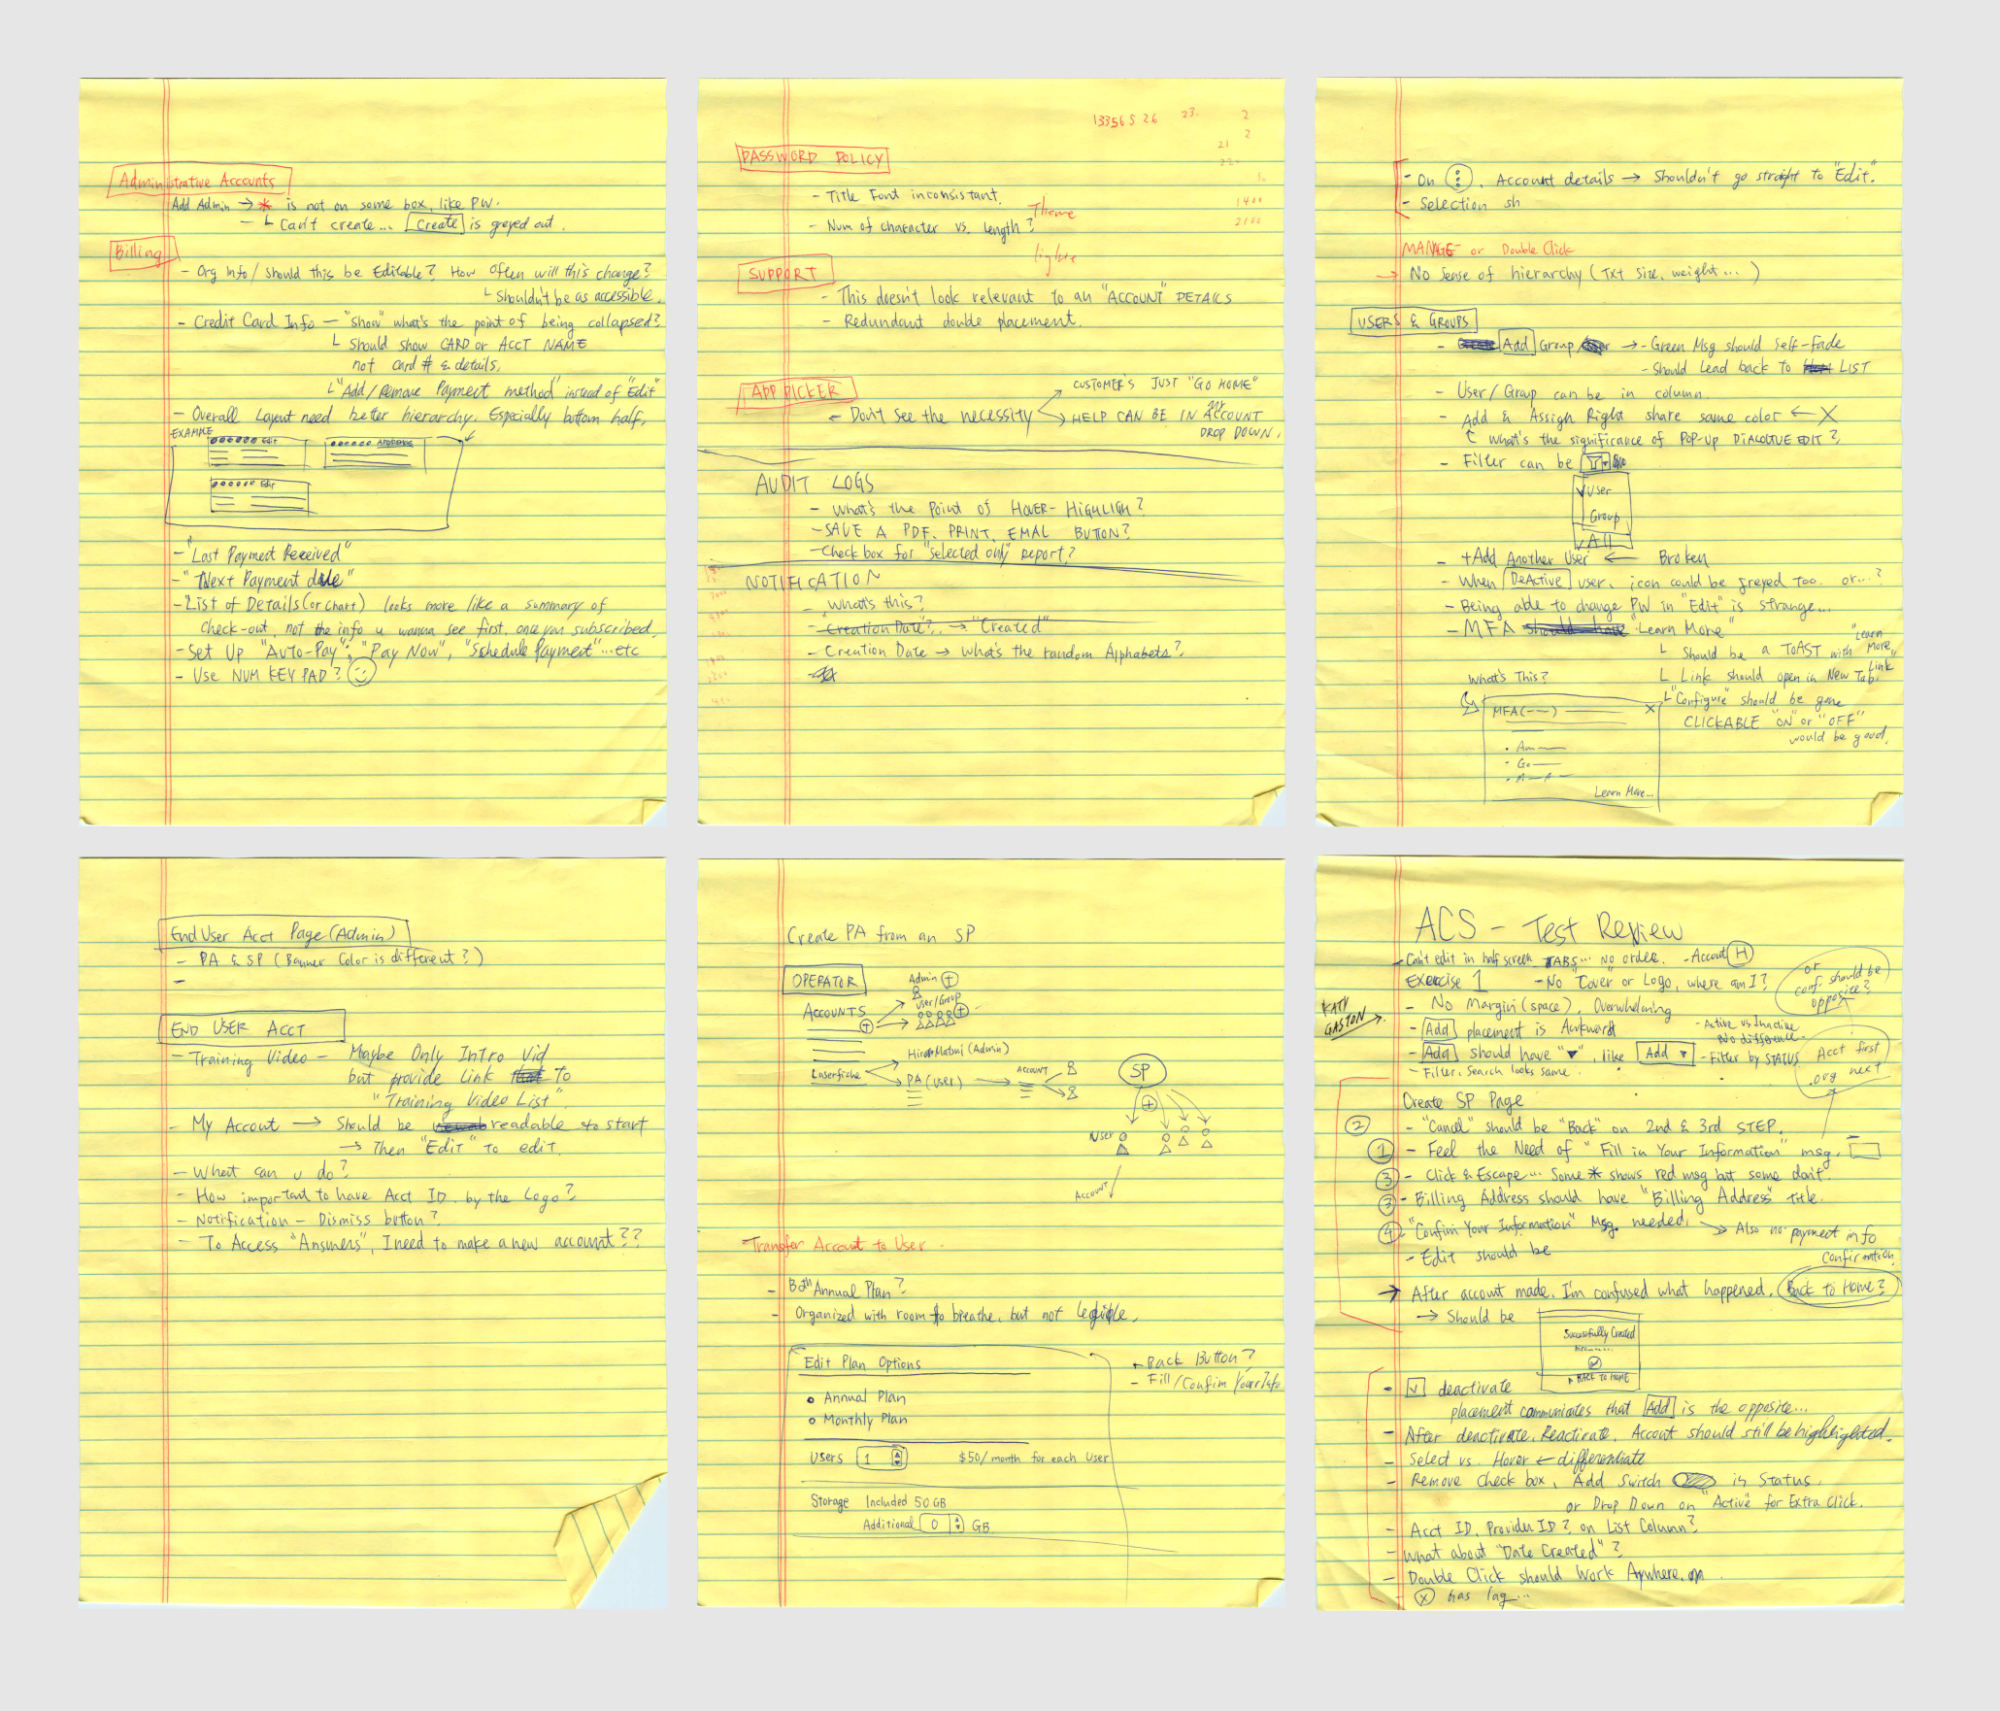 Administrative Accounts
Add Admin → * is not on some box, like PW.
– Can't create... Create is greyed out.
Billing
- Org Info / Should this be Editable? How often will this change?
Shouldn't be as accessible.
- Credit Card Info – "Show" what's the point of being collapsed?
Should show CARD or ACCT NAME
not card # & details.
"Add/Remove Payment method" instead of "Edit"
- Overall Layout need better hierarchy. Especially bottom half.
EXAMPLE
Edit
Edit
- "Last Payment Received"
- "Next Payment date"
- List of Details (or chart) looks more like a summary of
check-out, not the info u wanna see first, once you subscribed.
- Set Up "Auto-Pay", "Pay Now", "Schedule Payment"...etc
- Use NUM KEY PAD?
133565 26 23. 2
2
21
22
1400
2100
PASSWORD POLICY
- Title Font inconsistant.
Theme
- Num of character vs. length?
SUPPORT
- This doesn't look relevant to an "ACCOUNT" DETAILS
- Redundant double placement.
APP PICKER
CUSTOMER'S JUST "GO HOME"
- Don't see the necessity
HELP CAN BE IN ACCOUNT
DROP DOWN.
AUDIT LOGS
- What's the Point of HOVER-HIGHLIGH?
- SAVE A PDF, PRINT, EMAL BUTTON?
- Check box for "selected only" report?
NOTIFICATION
- What's this?
- "Creation Date"? → "Created"
- Creation Date → What's the random Alphabets?
- On ⋮, Account details → Shouldn't go straight to "Edit".
- Selection sh
MANAGE or Double Click
→ No sense of hierarchy (Txt size, weight...)
USERS & GROUPS
- Add Group → - Green Msg should self-fade
- Should Lead back to LIST
- User/Group can be in column.
- Add & Assign Right share same color ← X
What's the significance of POP-UP DIALOGUE EDIT?
- Filter can be
✓ User
Group
✓ All
- +Add Another User ← Broken
- When DeActive user, icon could be greyed too. or...?
- Being able to change PW in "Edit" is strange...
- MFA should have "Learn More"
Should be a TOAST with "Learn More" Link
Link should open in New Tab.
What's This?
"Configure" should be gone
CLICKABLE "ON" or "OFF"
would be good.
MFA (——) X
• Am——
• Go——
• A—A—
Learn More...
End User Acct Page (Admin)
- PA & SP (Banner Color is different?)
-
END USER ACCT
- Training Video – Maybe Only Intro Vid
but provide link to
"Training Video List".
- My Account → Should be readable to start
→ Then "Edit" to edit.
- What can u do?
- How important to have Acct ID. by the Logo?
- Notification – Dismiss button?
- To Access "Answers", I need to make a new account??
Create PA from an SP
OPERATOR
Admin +
User/Group
ACCOUNTS
Hiro Matsui (Admin)
Laserfiche
PA (user)
ACCOUNT
SP
User
Account
- Transfer Account to User.
- Annual Plan?
- Organized with room to breathe, but not legible.
Edit Plan Options
• Annual Plan
• Monthly Plan
Users 1 $50/month for each User
Storage Included 50 GB
Additional 0 GB
- Back Button?
- Fill/Confirm Your Info
ACS – Test Review
- Can't edit in half screen TABS... No order. - Account H
Exercise 1 - No "Cover" or Logo, where am I?
or conf. should be opposite?
KATY GASTON
- No Margin (space), Overwhelming
- Add placement is Awkward
- Active vs Inactive No difference.
- Add should have "▼", like Add ▼ - Filter by STATUS
- Filter, Search looks same.
Acct first
.org next
Create SP Page
② - "Cancel" should be "Back" on 2nd & 3rd STEP.
① - Feel the Need of "Fill in Your Information" msg.
③ - Click & Escape... Some * shows red msg but some don't.
③ - Billing Address should have "Billing Address" title.
④ - "Confirm Your Information" Msg. needed. → Also no payment info
confirmation.
- Edit should be
→ After account made, I'm confused what happened. Back to Home?
→ Should be
Successfully Created
BACK TO HOME
- ✓ deactivate
placement communicates that Add is the opposite...
- After deactivate, Reactivate, Account should still be highlighted.
- Select vs. Hover ← differentiate
- Remove Check box, Add Switch in Status.
or Drop Down on "Active" for Extra Click.
- Acct ID, Provider ID? on List Column?
- What about "Date Created"?
- Double Click should work Anywhere. on
- ⓧ has lag...